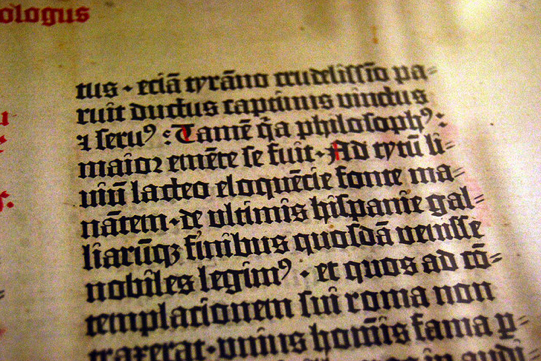 ologus
tus · eciā tyrāno crudelissīo pa⸗
ruit ductus captiuus vinctus
⁊ seruꝰ : Tamē q̄a philosophꝰ:
maioꝛ emēte se fuit · Ad tytū li⸗
uiū lacteo eloquēcie fonte ma⸗
nātem · de vltimis hispanie gal⸗
liarūqꝫ finibus quosdā venisse
nobiles legimꝰ · et quos ad cō⸗
templacionem sui roma non
traxerat · vnius homīs fama ꝑ⸗